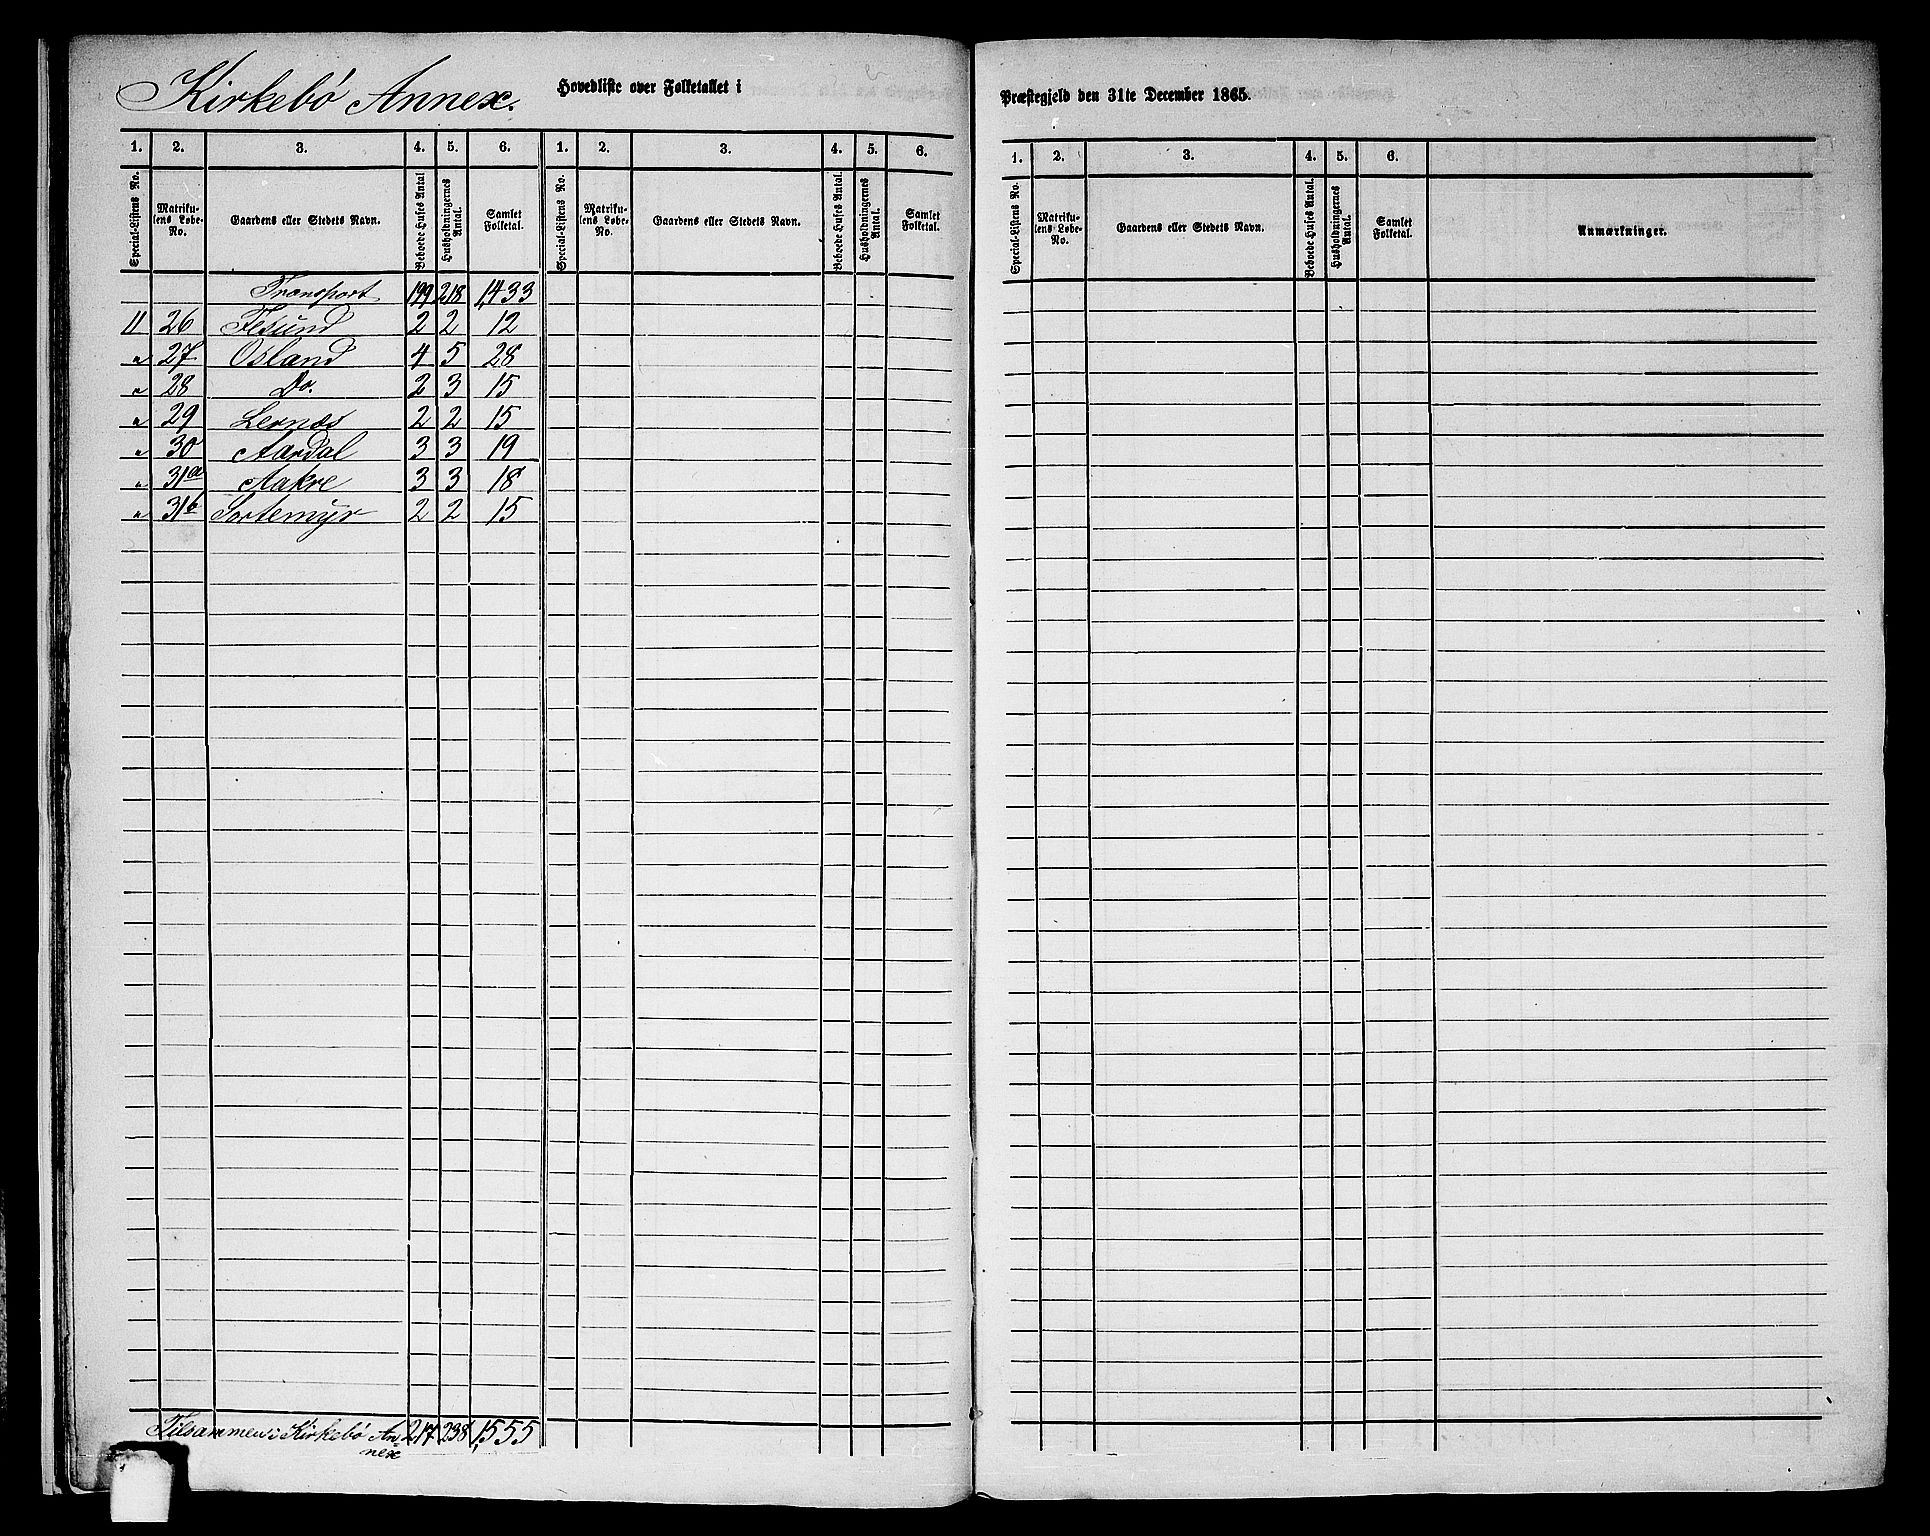 Kirkebø Annex.
Hovedliste over Folketallet i Præstegjeld den 31te December 1865.
1. 2. 3. 4. 5. 6. 1. 2. 3. 4. 5. 6. 1. 2. 3. 4. 5. 6.
Special-Listens No. Matrikulens Løbe-No. Gaardens eller Stedets Navn. Beboede Huses Antal Husholdningernes Antal. Samlet Folketal.
Special-Listens No. Matrikulens Løbe-No. Gaardens eller Stedets Navn. Beboede Huses Antal. Husholdningernes Antal. Samlet Folketal.
Special-Listens No. Matrikulens Løbe-No. Gaardens eller Stedets Navn. Beboede Huses Antal. Husholdningernes Antal. Samlet Folketal. Anmærkninger.
Transport 199 218 1,433
11 26 2 2 12
" 27 Osland 4 5 28
" 28 Do. 2 3 15
" 29 Lernæs 2 2 15
" 30 Aardal 3 3 19
" 31a Aakre 3 3 18
" 31b Sortemyr 2 2 15
Tilsammen i Kirkebø Annex 217 238 1,555